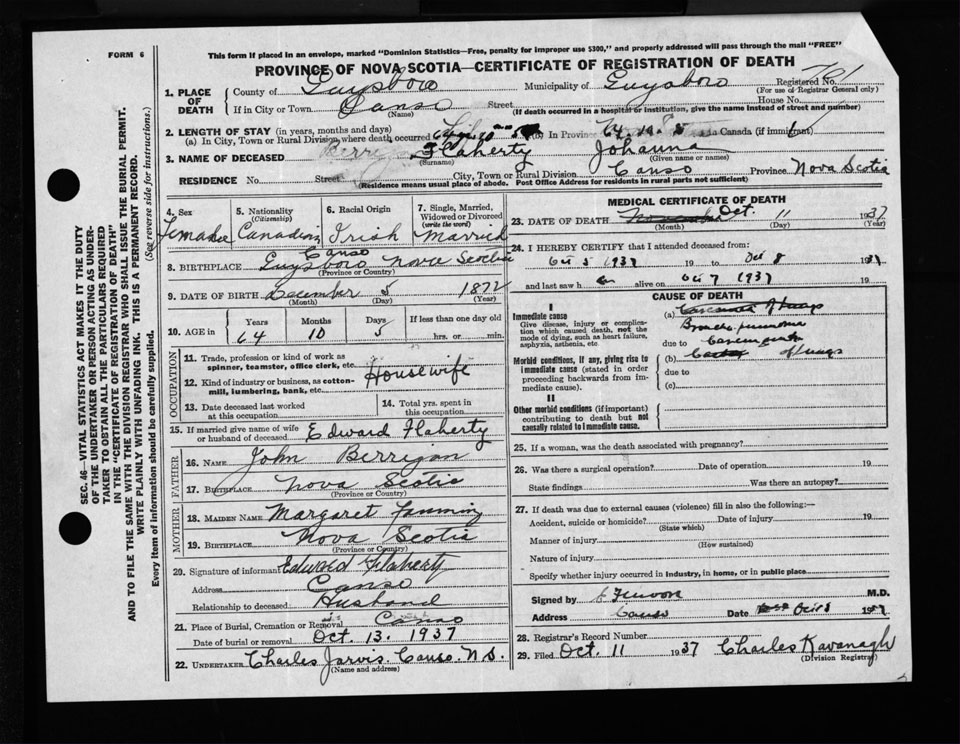 FORM 6
This form if placed in an envelope, marked "Dominion Statistics—Free, penalty for improper use $300," and properly addressed will pass through the mail "FREE"
PROVINCE OF NOVA SCOTIA—CERTIFICATE OF REGISTRATION OF DEATH
SEC. 46—VITAL STATISTICS ACT MAKES IT THE DUTY
OF THE UNDERTAKER OR PERSON ACTING AS UNDER-
TAKER TO OBTAIN ALL THE PARTICULARS REQUIRED
IN THE "CERTIFICATE OF REGISTRATION OF DEATH"
AND TO FILE THE SAME WITH THE DIVISION REGISTRAR WHO SHALL ISSUE THE BURIAL PERMIT.
WRITE PLAINLY WITH UNFADING INK. THIS IS A PERMANENT RECORD.
Every item of information should be carefully supplied. (See reverse side for instructions.)
1. PLACE OF DEATH County of Guysboro Municipality of Guysboro Registered No. 761
(For use of Registrar General only)
If in City or Town Canso Street House No.
(Name) (If death occurred in a hospital or institution, give the name instead of street and number)
2. LENGTH OF STAY (in years, months and days)
(a) In City, Town or Rural Division where death occurred (b) In Province Canada (if immigrant)
3. NAME OF DECEASED Flaherty Johanna
(Surname) (Given name or names)
RESIDENCE No. Street City, Town or Rural Division Canso Province Nova Scotia
(Residence means usual place of abode. Post Office Address for residents in rural parts not sufficient)
4. Sex Female
5. Nationality (Citizenship) Canadian
6. Racial Origin Irish
7. Single, Married, Widowed or Divorced (write the word) Married
8. BIRTHPLACE Canso Guysboro Nova Scotia
(Province or Country)
9. DATE OF BIRTH December 5 1872
(Month) (Day) (Year)
10. AGE in Years Months Days If less than one day old
64 10 5 hrs. or min.
OCCUPATION
11. Trade, profession or kind of work as spinner, teamster, office clerk, etc. Housewife
12. Kind of industry or business, as cotton-mill, lumbering, bank, etc.
13. Date deceased last worked at this occupation
14. Total yrs. spent in this occupation
15. If married give name of wife or husband of deceased Edward Flaherty
FATHER
16. NAME John Berrigan
17. BIRTHPLACE Nova Scotia
(Province or Country)
MOTHER
18. MAIDEN NAME Margaret Fanning
19. BIRTHPLACE Nova Scotia
(Province or Country)
20. Signature of informant Edward Flaherty
Address Canso
Relationship to deceased Husband
21. Place of Burial, Cremation or Removal Canso
Date of burial or removal Oct. 13. 1937
22. UNDERTAKER Charles Jarvis. Canso. N.S.
(Name and address)
MEDICAL CERTIFICATE OF DEATH
23. DATE OF DEATH Oct. 11 1937
(Month) (Day) (Year)
24. I HEREBY CERTIFY that I attended deceased from:
Oct 5 1937 19 to Oct 8 1937
and last saw h er alive on Oct 7 1937 19
CAUSE OF DEATH
I
Immediate cause
Give disease, injury or complication which caused death, not the mode of dying, such as heart failure, asphyxia, asthenia, etc.
(a) Carcinoma of lungs
Broncho pneumonia
due to Carcinoma
Morbid conditions, if any, giving rise to immediate cause (stated in order proceeding backwards from immediate cause).
(b) of lungs
due to
(c)
II
Other morbid conditions (if important) contributing to death but not causally related to immediate cause.
25. If a woman, was the death associated with pregnancy?
26. Was there a surgical operation? Date of operation 19
State findings Was there an autopsy?
27. If death was due to external causes (violence) fill in also the following:—
Accident, suicide or homicide? Date of injury 19
(State which)
Manner of injury
(How sustained)
Nature of injury
Specify whether injury occurred in industry, in home, or in public place
Signed by M.D.
Address Canso Date Oct 1937
28. Registrar's Record Number
29. Filed Oct. 11 1937 Charles Kavanagh
(Division Registrar)